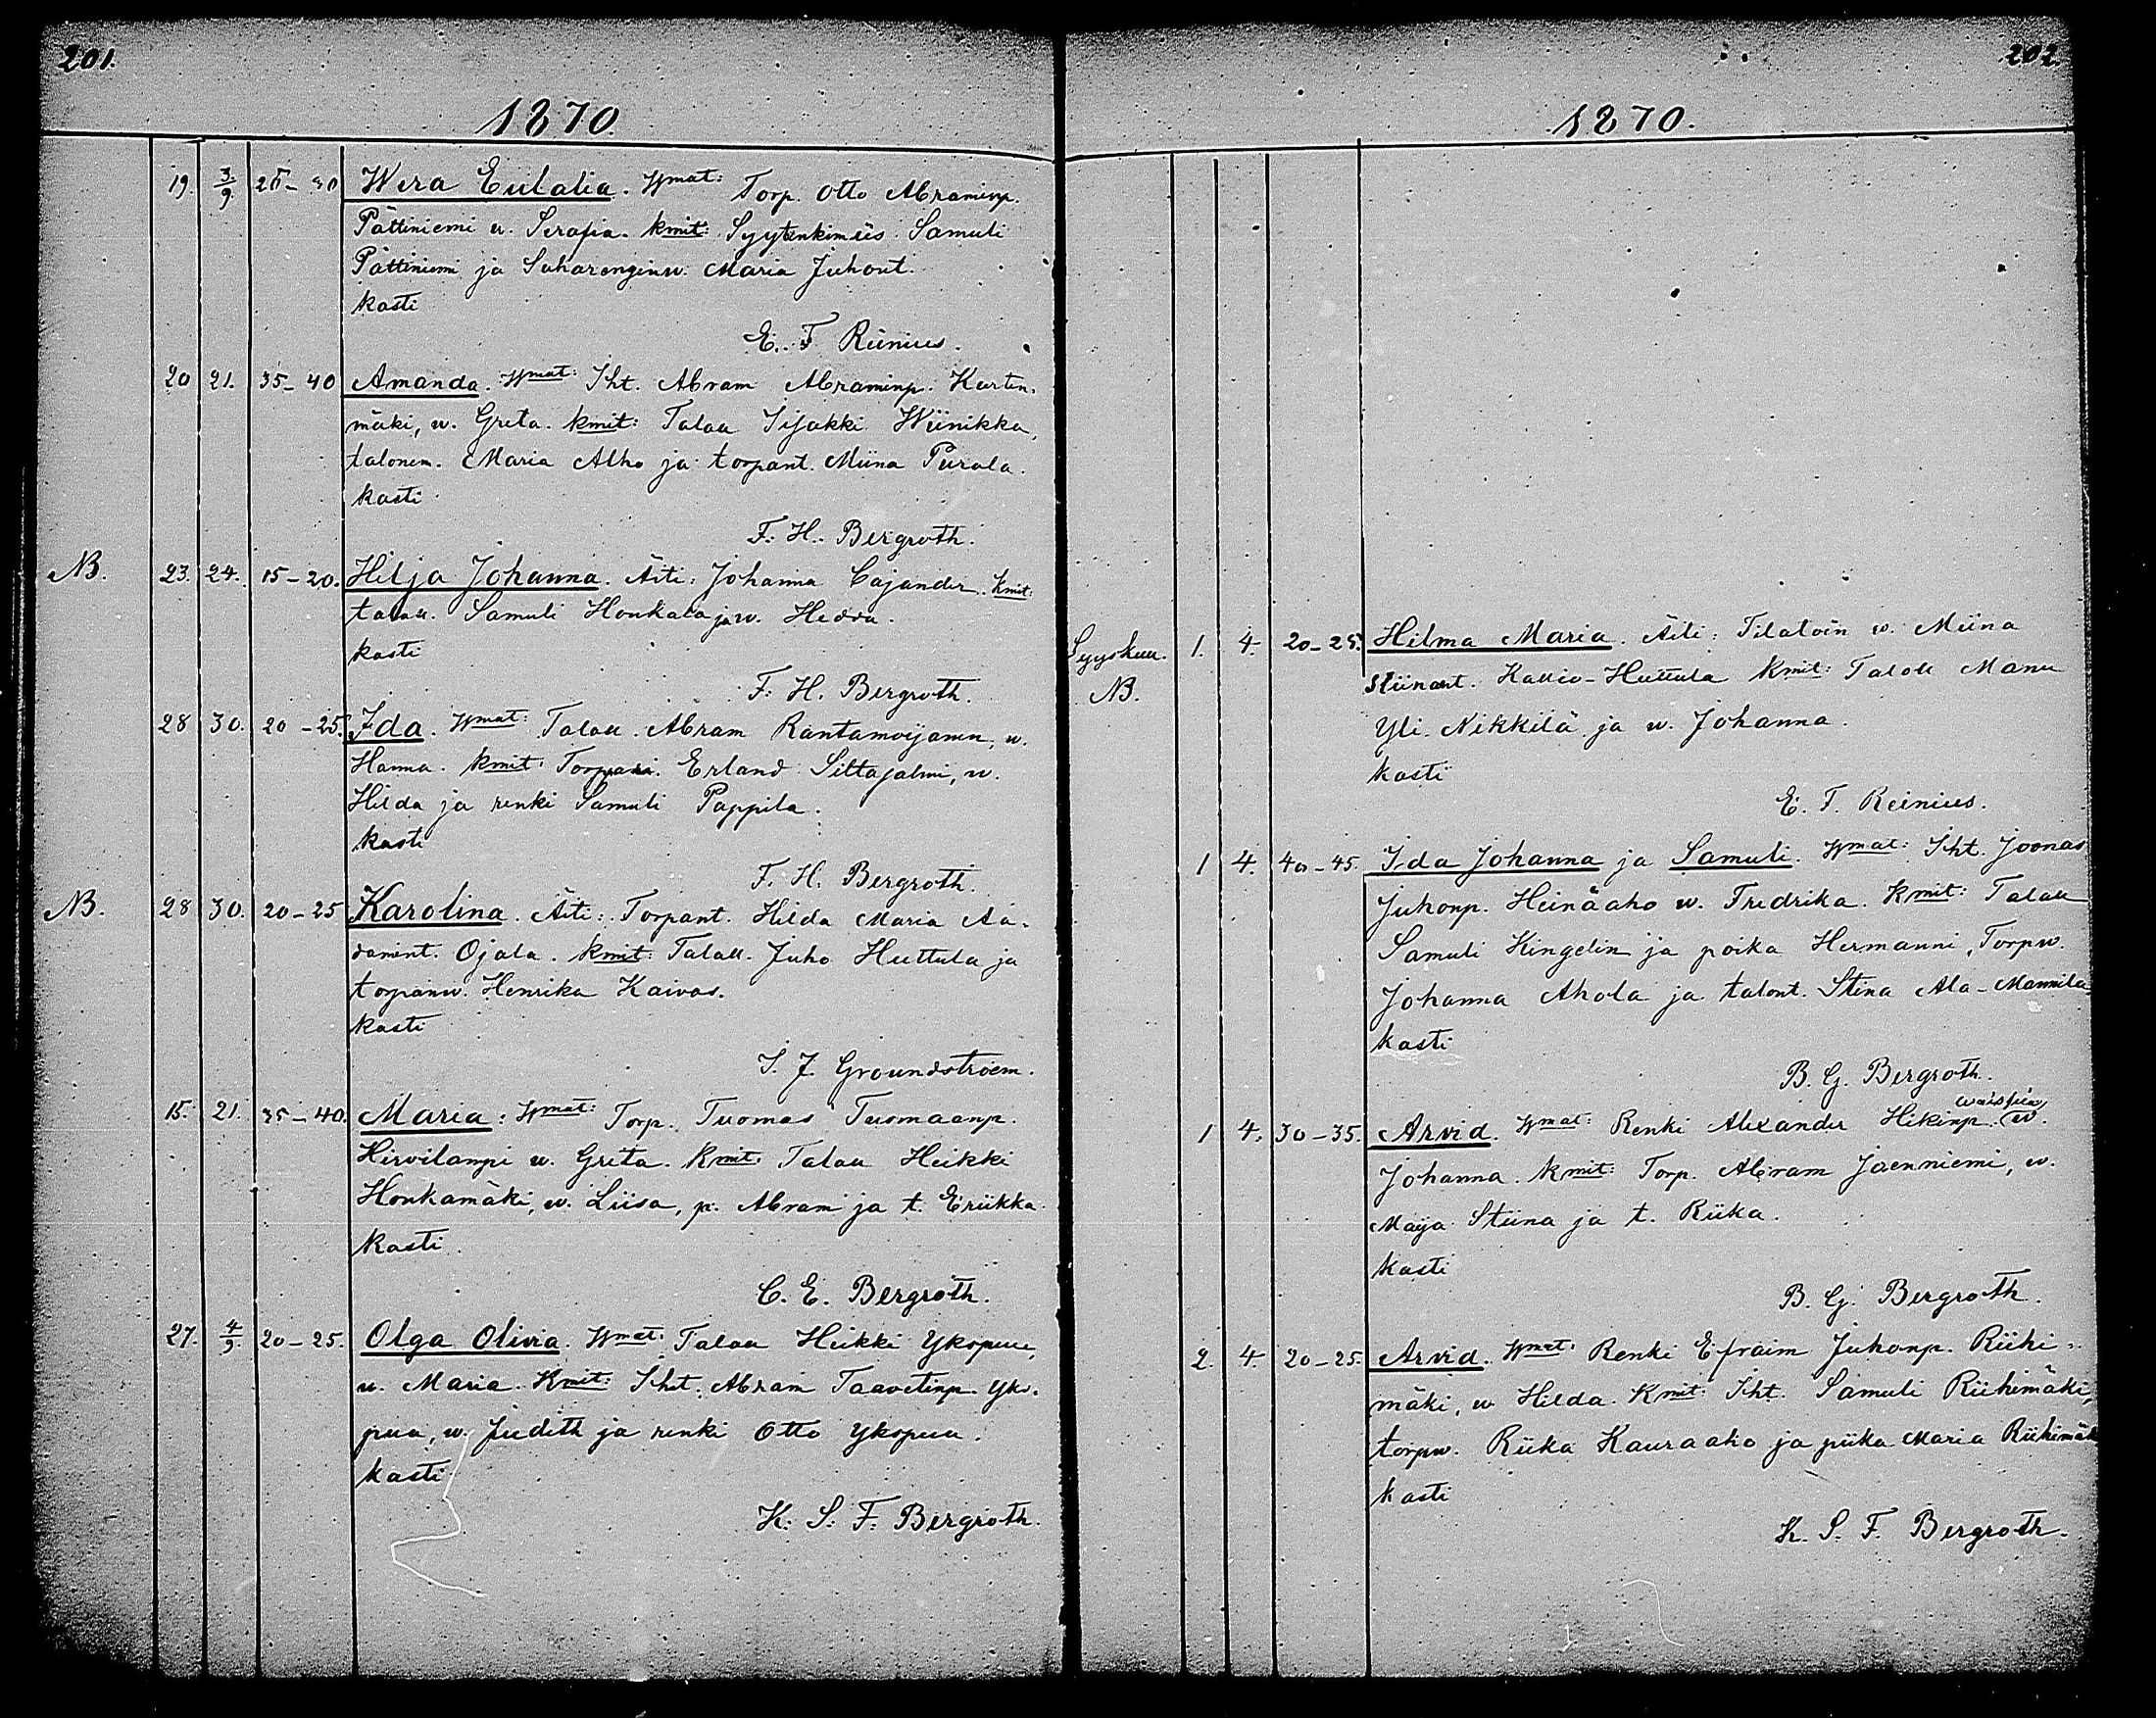 201.
1870.
19. 3/9. 25-30 Wera Eulalia. Wmat: Torp. Otto Abraminp.
Pättiniemi w. Serafia. kmit: Syytinkimies Samuli
Pättiniemi ja Saharenginw. Maria Juhont.
kasti
E. F Reinius.
20 21. 35-40 Amanda. Wmat: Iht. Abram Abraminp. Kurten-
mäki, w. Greta. kmit: Talou Iisakki Wiinikka,
talonem. Maria Alho ja torpant. Miina Purola.
kasti
F. H. Bergroth.
NB. 23. 24. 15-20. Hilja Johanna. Äiti: Johanna Cajander. kmit:
talou. Samuli Honkala ja w. Hedda.
kasti
F. H. Bergroth.
28 30. 20-25. Ida. Wmat: Talou. Abram Rantamoijanen, w.
Hanna. kmit: Torppari. Erland Siltasalmi, w.
Hilda ja renki Samuli Pappila.
kasti
F. H. Bergroth.
NB. 28 30. 20-25 Karolina. Äiti: Torpant. Hilda Maria Aa-
damint. Ojala. kmit: Talou. Juho Huttula ja
torpanw. Henrika Kaivos.
kasti
I. J. Groundstroem.
15. 21. 35-40. Maria: Wmat: Torp. Tuomas Tuomaanp.
Hirvilampi w. Greta. Kmit: Talou Heikki
Honkamäki, w. Liisa, p. Abram ja t. Eriikka.
kasti
C. E. Bergroth.
27. 4/9. 20-25. Olga Olivia. Wmat: Talou Heikki Ykspuu,
w. Maria. Kmit: Iht. Abram Taavetinp. Yks-
puu, w. Judith ja renki Otto Ykspuu.
kasti
K. S. F. Bergroth.
202.
1870.
Syyskuu. 1. 4. 20-25. Hilma Maria. Äiti: Tilatoin w. Miina
NB. Stiinant. Kallio-Huttula kmit: Talou Manu
Yli-Nikkilä ja w. Johanna.
kasti
E. F. Reinius.
1 4. 40-45. Ida Johanna ja Samuli. Wmat: Iht. Joonas
Juhonp. Heinäaho w. Fredrika. Kmit: Talou
Samuli Kingelin ja poika Hermanni, Torpw.
Johanna Ahola ja talont. Stina Ala-Mannila
kasti
B. G. Bergroth.
1 4. 30-35. Arvid. Wmat: Renki Alexander Hikinp. w.
Johanna. kmit: Torp. Abram Jaenniemi, w.
Maija Stiina ja t. Riika.
kasti
B. G. Bergroth.
2. 4. 20-25. Arvid. Wmat: Renki Efraim Juhonp. Riihi-
mäki, w Hilda. Kmit: Iht. Samuli Riihimäki,
torpw. Riika Kauraaho ja piika Maria Riihimäki
kasti
K. S. F. Bergroth.